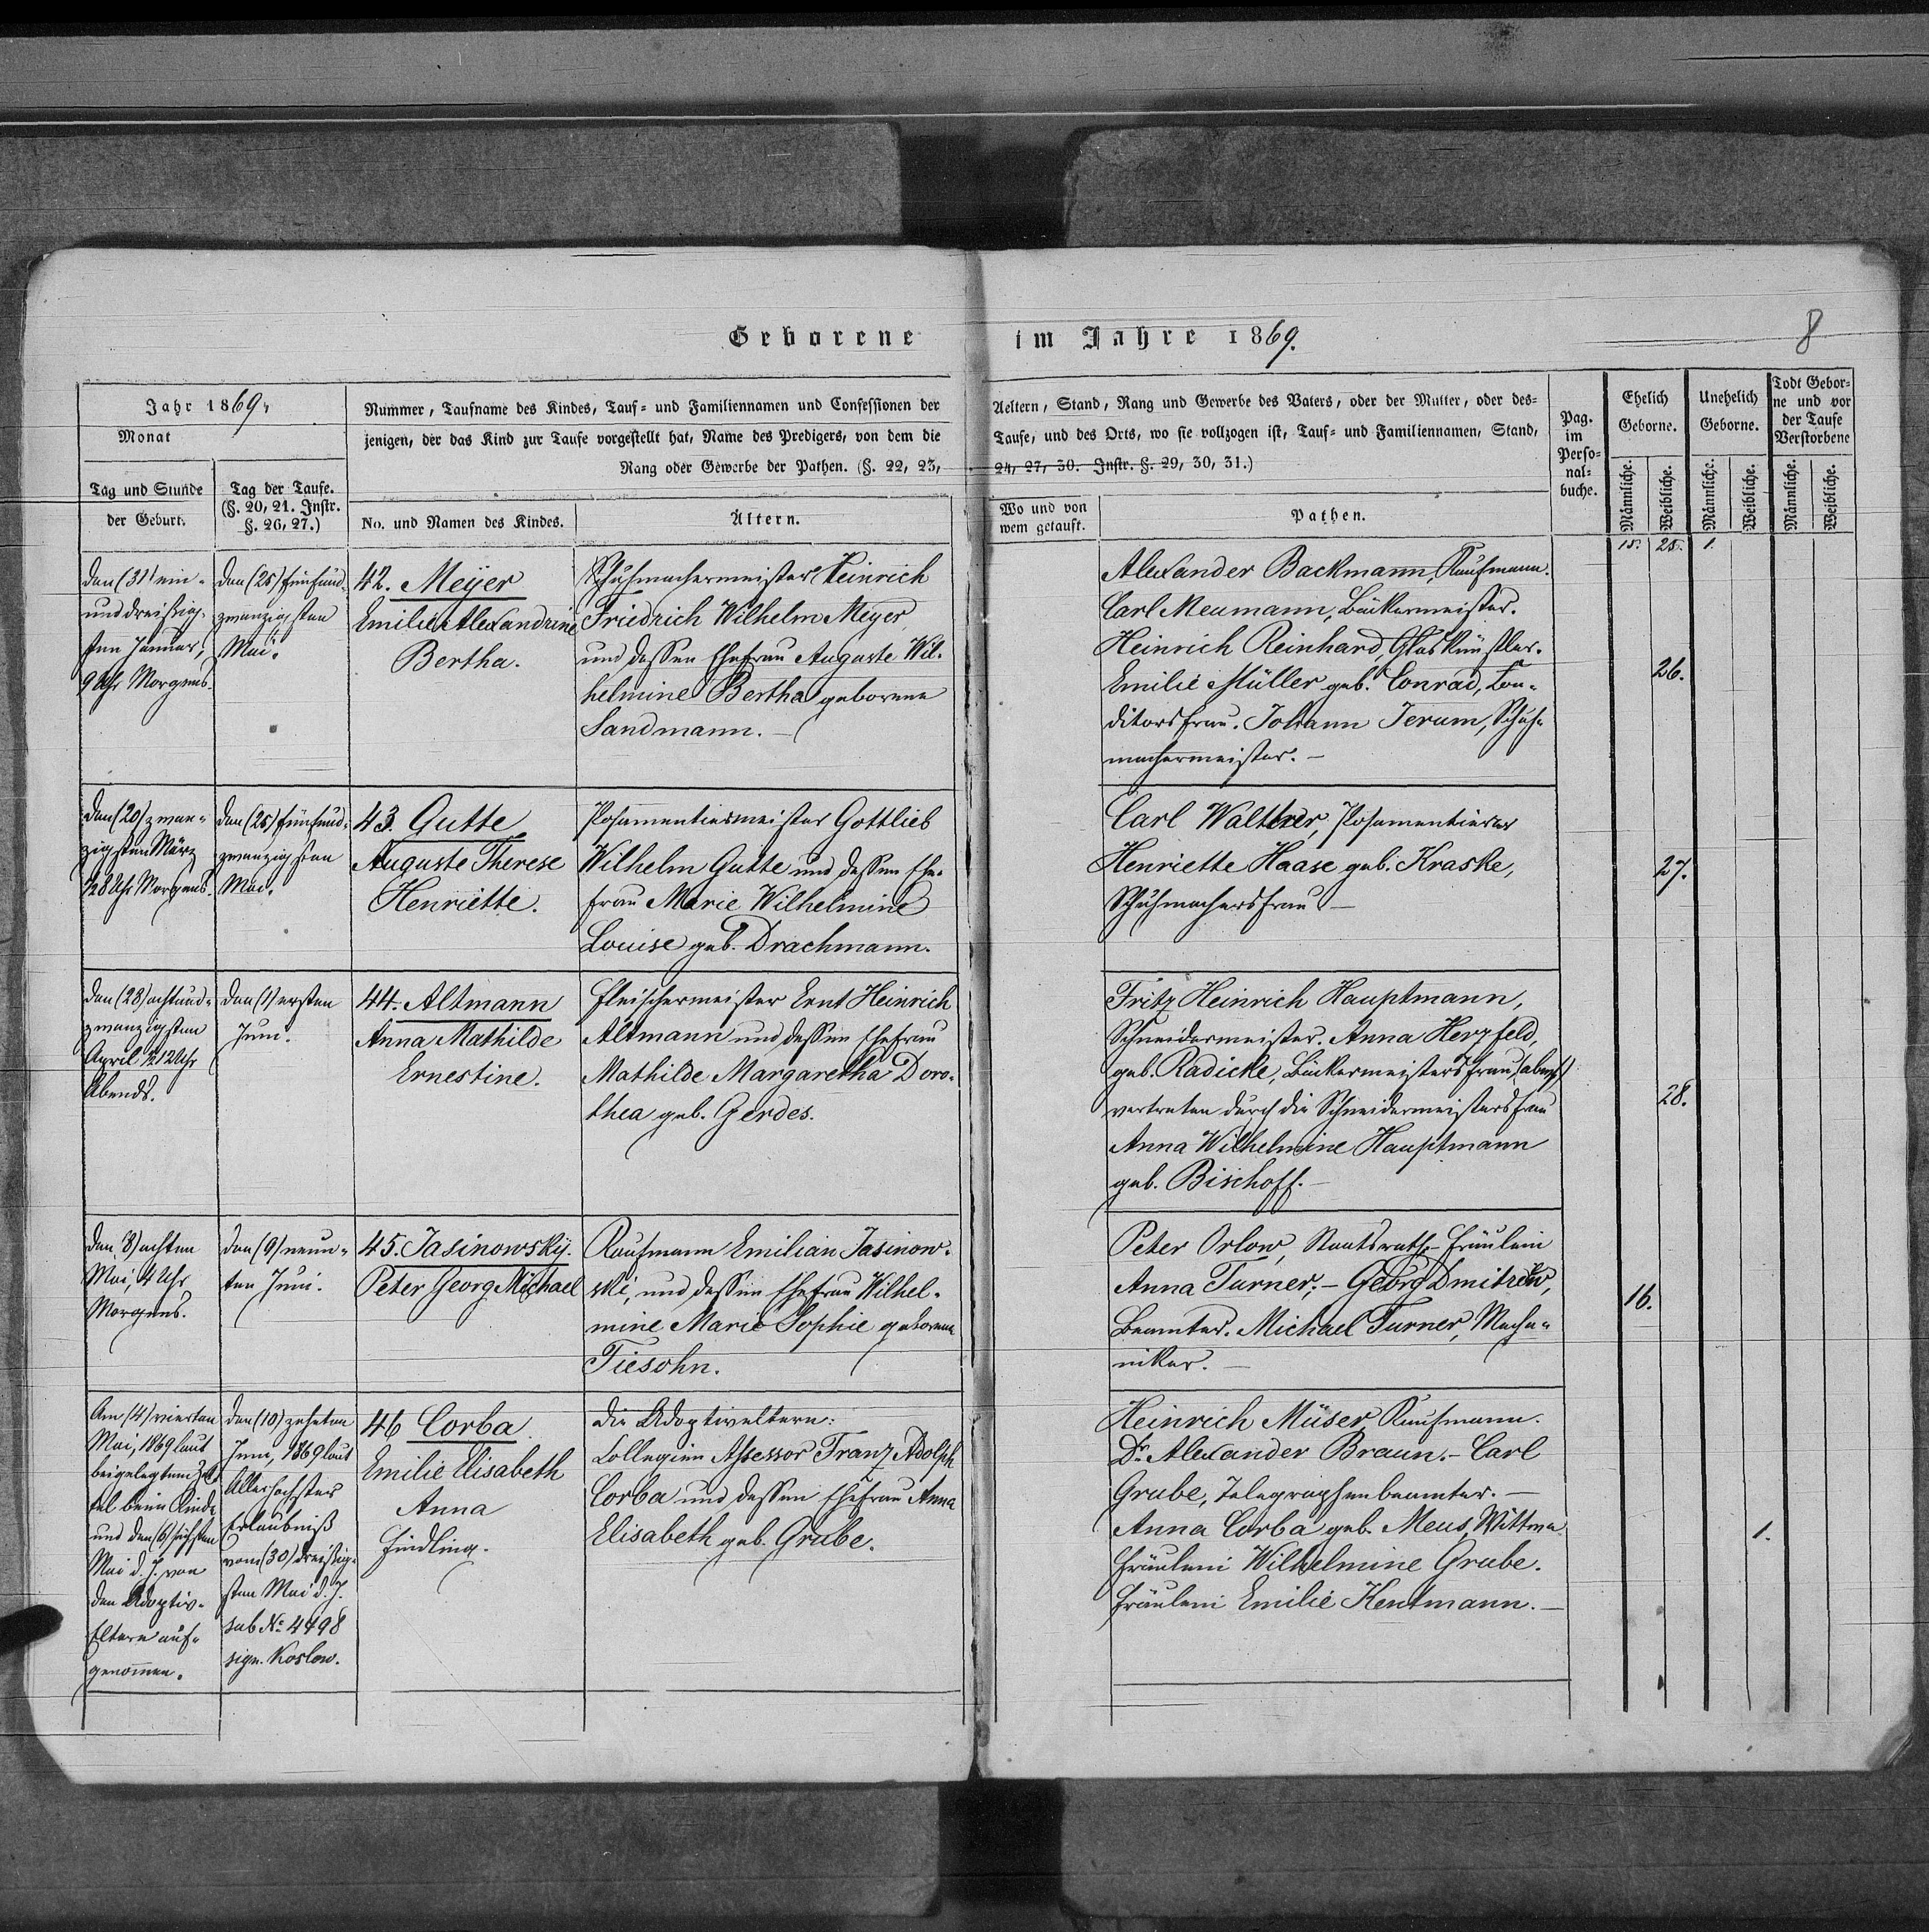 Geborene im Jahre 1869.
8
Jahr 1869,
Monat
Tag und Stunde
der Geburt.
Tag der Taufe.
(§. 20, 21. Instr.
§. 26, 27.)
Nummer, Taufname des Kindes, Tauf- und Familiennamen und Confessionen der
jenigen, der das Kind zur Taufe vorgestellt hat, Name des Predigers, von dem die
Rang oder Gewerbe der Pathen. (§. 22, 23,
No. und Namen des Kindes.
Ältern.
Aeltern, Stand, Rang und Gewerbe des Vaters, oder der Mutter, oder des-
Taufe, und des Orts, wo sie vollzogen ist, Tauf- und Familiennamen, Stand,
24, 27, 30. Instr. §. 29, 30, 31.)
Wo und von
wem getauft.
Pathen.
Pag.
im
Perso-
nal-
buche.
Ehelich
Geborne.
Unehelich
Geborne.
Todt Gebor-
ne und vor
der Taufe
Verstorbene
Männliche.
Weibliche.
Männliche.
Weibliche.
Männliche.
Weibliche.
15. 25. 1.
den (31) ein-
und dreißig-
sten Januar,
9 Uhr Morgens.
den (25) fünfund-
zwanzigsten
Mai.
42. Meyer
Emilie Alexandrine
Bertha.
Schuhmachermeister Heinrich
Friedrich Wilhelm Meyer
und dessen Ehefrau Auguste Wil-
helmine Bertha geborene
Sandmann. —
Alexander Backmann, Kaufmann.
Carl Meumann, Bäckermeister.
Heinrich Reinhard, Glaskünstler.
Emilie Müller geb. Conrad, Con-
ditorsfrau. Johann Jerum, Schuh-
machermeister. —
26.
den (20) zwan-
zigsten März
1/2 8 Uhr Morgens.
den (25) fünfund-
zwanzigsten
Mai.
43. Gutte
Auguste Therese
Henriette.
Posamentiermeister Gottlieb
Wilhelm Gutte und dessen Ehe-
frau Marie Wilhelmine
Louise geb. Drachmann.
Carl Walther, Posamentierer
Henriette Haase geb. Kraske,
Schuhmachersfrau —
27.
den (28) achtund-
zwanzigsten
April 1/2 12 Uhr
Abends.
den (1) ersten
Juni.
44. Altmann
Anna Mathilde
Ernestine.
Fleischermeister Ernt Heinrich
Altmann und dessen Ehefrau
Mathilde Margaretha Doro-
thea geb. Gerdes.
Fritz Heinrich Hauptmann,
Schneidermeister. Anna Herzfeld,
geb. Radicke, Bäckermeistersfrau
vertreten durch die Schneidermeistersfrau
Anna Wilhelmine Hauptmann
geb. Bischoff. —
28.
den (8) achten
Mai, 4 Uhr
Morgens.
den (9) neun-
ten Juni.
45. Jasinowsky.
Peter Georg Michael
Kaufmann Emilian Jasinow-
ski, und dessen Ehefrau Wilhel-
mine Marie Sophie geborene
Tiesohn.
Peter Orlow, Staatsrath. Fräulein
Anna Turner. — Georg Dmitriew,
Beamter. Michael Turner, Mecha-
niker. —
16.
Am (4) vierten
Mai, 1869 laut
beigelegtem Zet-
tel beim Kinde
und den (6) sechsten
Mai d. J. von
den Adoptiv-
Eltern auf-
genommen.
den (10) zehnten
Juni, 1869 laut
Allerhöchster
Erlaubniß
vom (30) dreißig-
sten Mai d. J.
sub No 4498
sign. Koslow.
46 Corba.
Emilie Elisabeth
Anna
Findling.
Die Adoptiveltern:
Collegien Assessor Franz Adolph
Corba und dessen Ehefrau Anna
Elisabeth geb. Grube.
Heinrich Müser, Kaufmann.
Dr. Alexander Braun. — Carl
Grube, Telegraphenbeamter. —
Anna Corba geb. Meus, Wittwe
Fräulein Wilhelmine Grube.
Fräulein Emilie Hentmann. —
1.